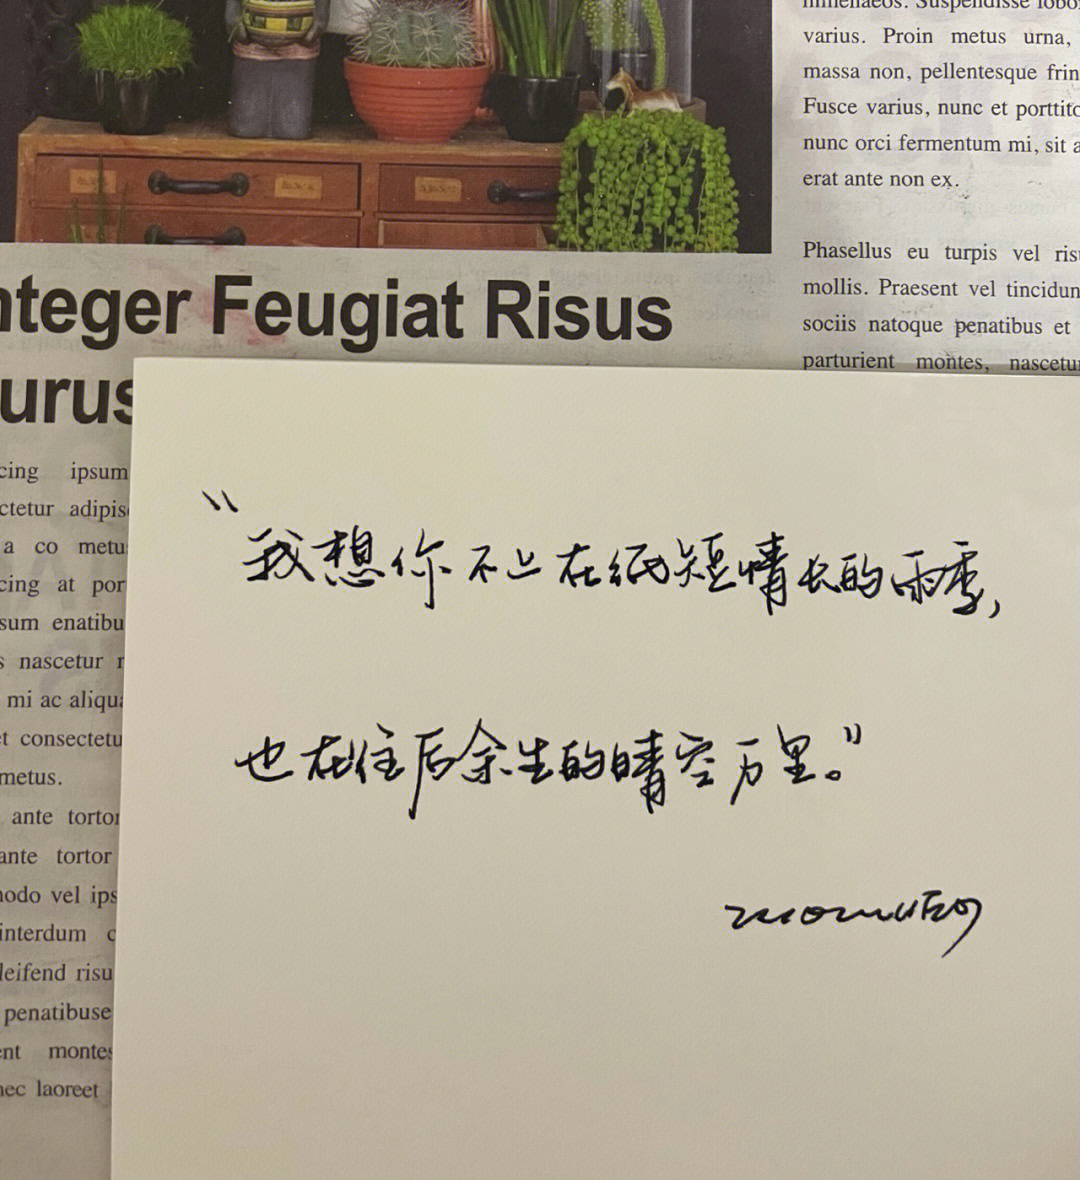 nteger Feugiat Risus
urus
cing ipsum
ctetur adipis
a co metu
cing at por
sum enatibu
s nascetur
mi ac aliqu
et consectetu
metus.
ante tortor
ante tortor
modo vel ips
interdum c
leifend risu
penatibuse
nt montes
nec laoreet
himenaeos. Suspendisse lobo
varius. Proin metus urna,
massa non, pellentesque frin
Fusce varius, nunc et porttito
nunc orci fermentum mi, sit a
erat ante non ex.
Phasellus eu turpis vel ris
mollis. Praesent vel tincidun
sociis natoque penatibus et
parturient montes, nascetu
“我想你不止在纸短情长的雨季,
也在往后余生的晴空万里。”